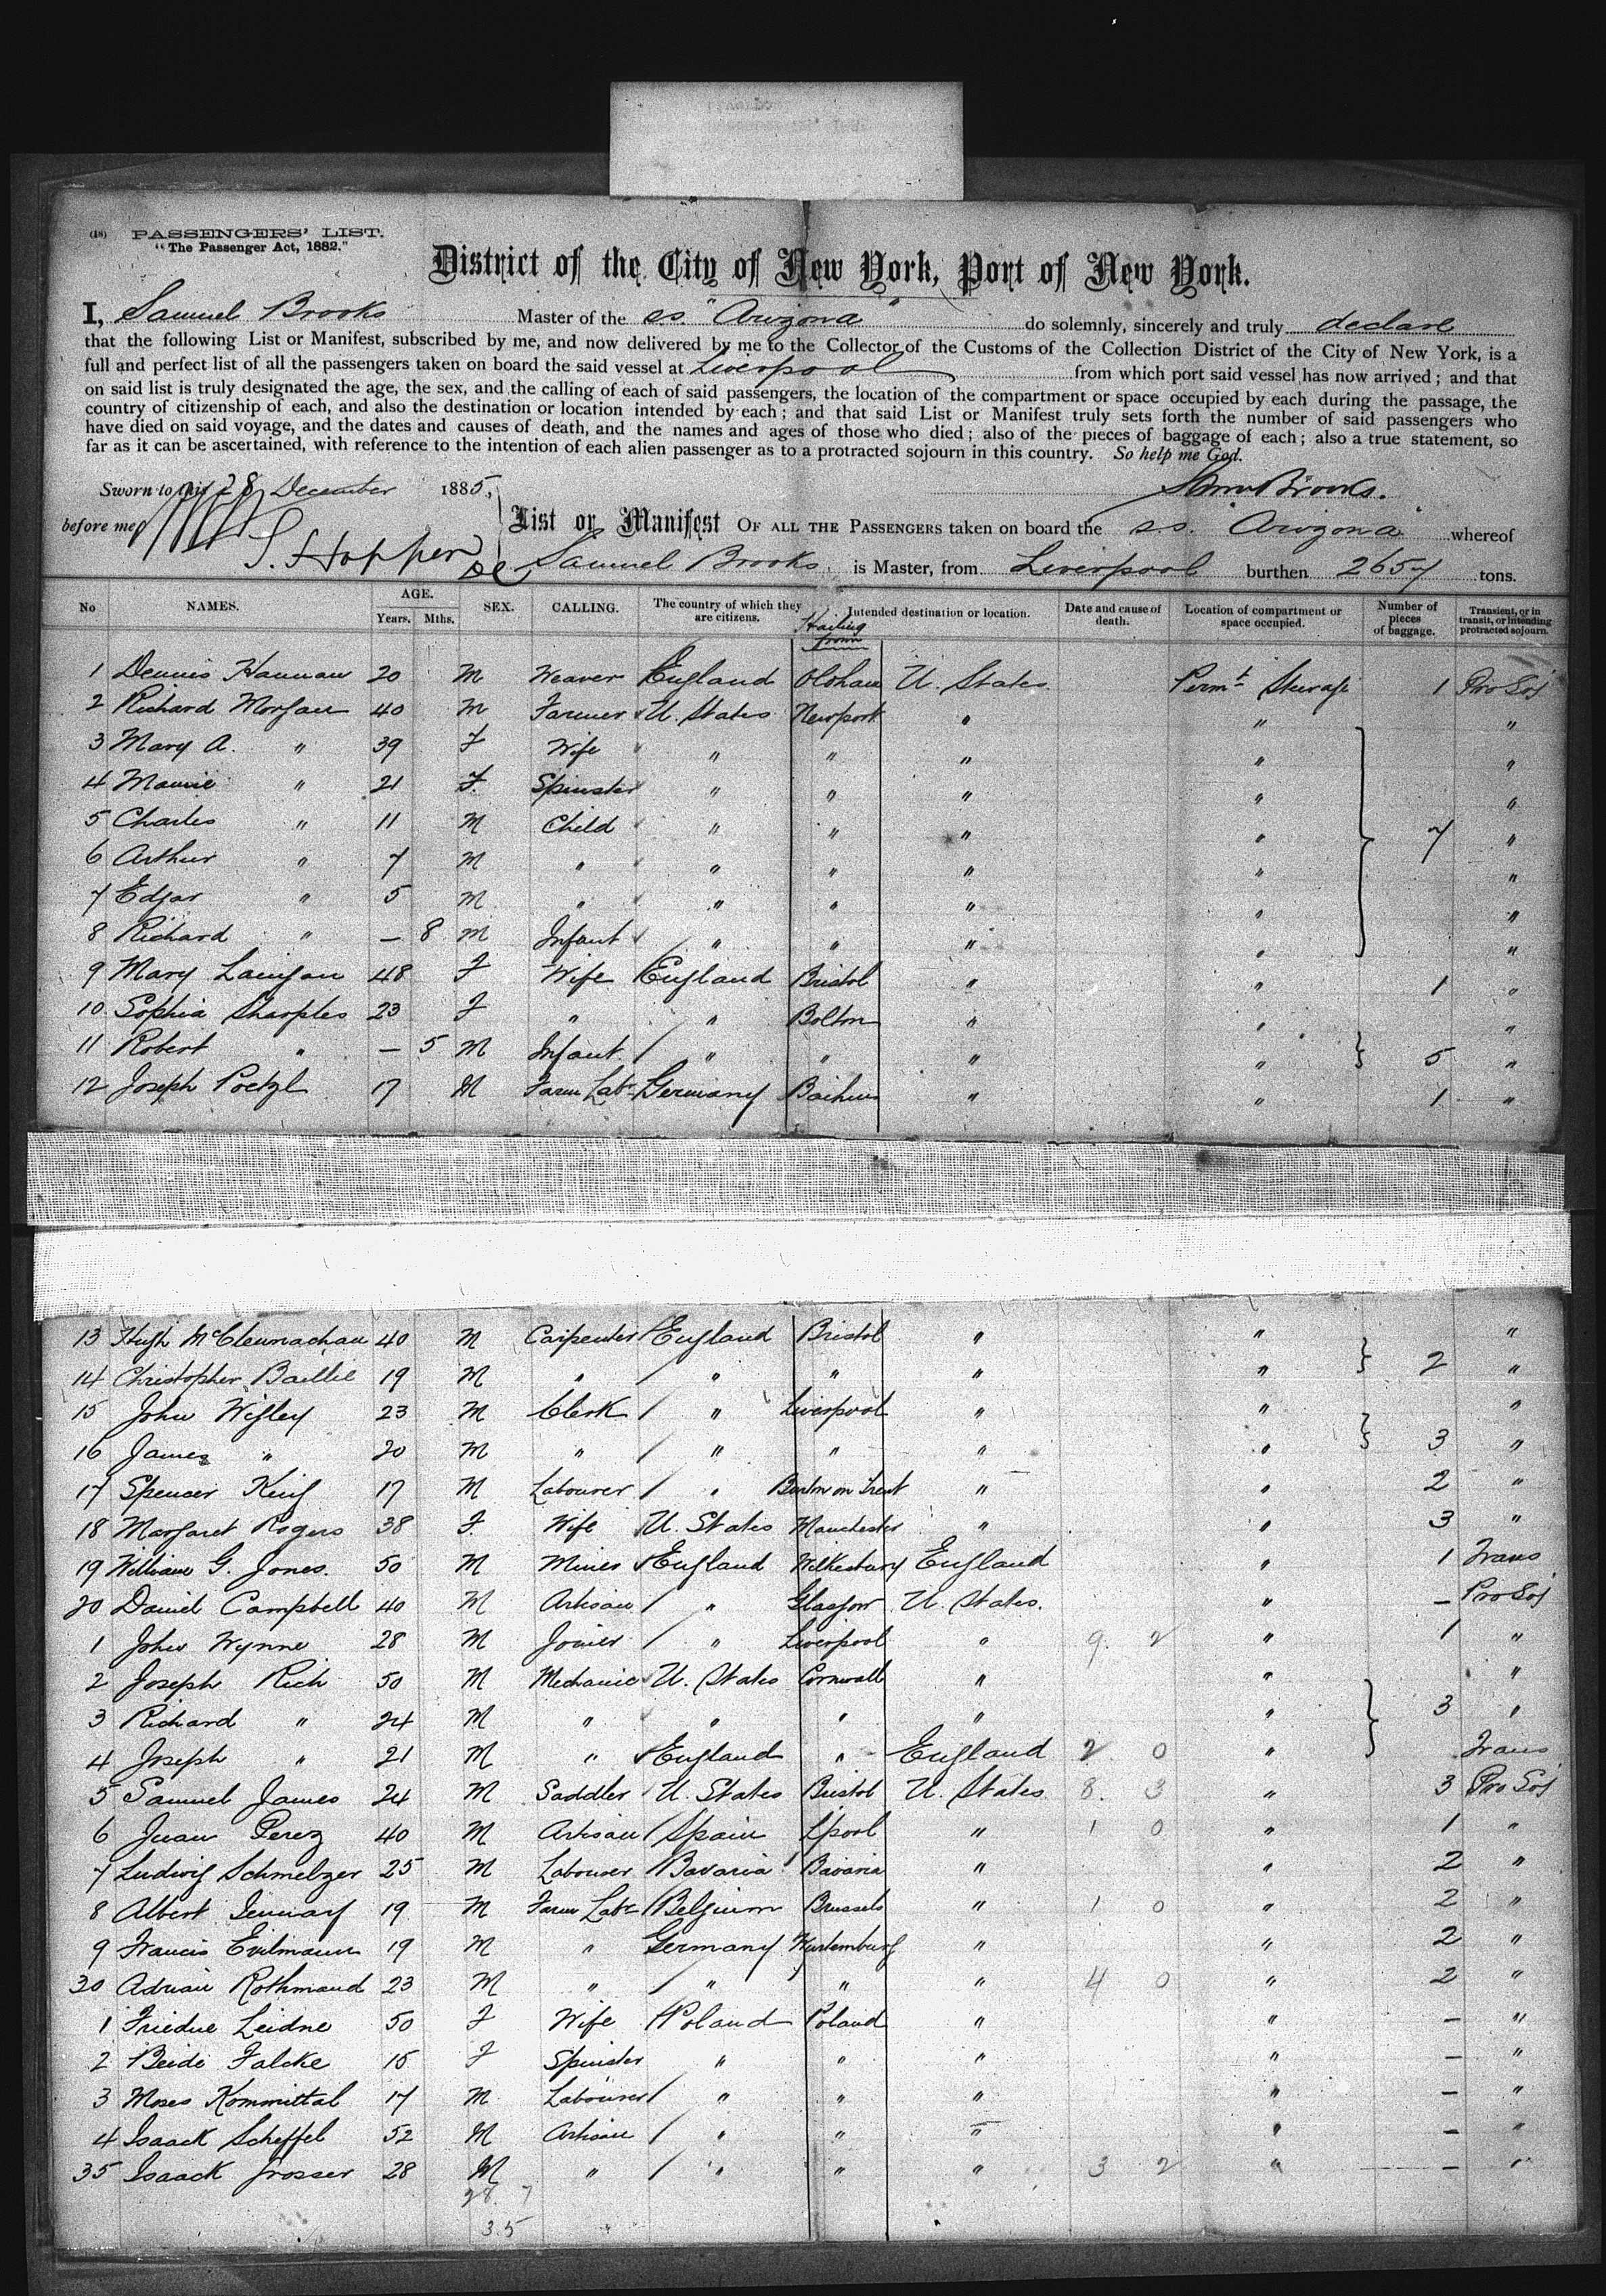 (18) PASSENGERS' LIST.
"The Passenger Act, 1882."
District of the City of New York, Port of New York.
I, Samuel Brooks Master of the s.s. "Arizona" do solemnly, sincerely and truly declare
that the following List or Manifest, subscribed by me, and now delivered by me to the Collector of the Customs of the Collection District of the City of New York, is a
full and perfect list of all the passengers taken on board the said vessel at Liverpool from which port said vessel has now arrived; and that
on said list is truly designated the age, the sex, and the calling of each of said passengers, the location of the compartment or space occupied by each during the passage, the
country of citizenship of each, and also the destination or location intended by each; and that said List or Manifest truly sets forth the number of said passengers who
have died on said voyage, and the dates and causes of death, and the names and ages of those who died; also of the pieces of baggage of each; also a true statement, so
far as it can be ascertained, with reference to the intention of each alien passenger as to a protracted sojourn in this country. So help me God.
Sworn to this 28 December 1885, Saml Brooks.
before me S. Hopper
List or Manifest OF ALL THE PASSENGERS taken on board the s.s. "Arizona" whereof
Samuel Brooks is Master, from Liverpool burthen 2657 tons.
No NAMES. AGE. Years. Mths. SEX. CALLING. The country of which they are citizens. Hailing from Intended destination or location. Date and cause of death. Location of compartment or space occupied. Number of pieces of baggage. Transient, or in transit, or intending protracted sojourn.
1 Dennis Hannan 20 M Weaver England Oldham U. States Permt Steerage 1 Pro Soj
2 Richard Morgan 40 M Farmer U. States Newport " " "
3 Mary A. " 39 F Wife " " " " "
4 Mamie " 21 F. Spinster " " " " "
5 Charles " 11 M Child " " " " 7 "
6 Arthur " 7 M " " " " " "
7 Edgar " 5 M " " " " " "
8 Richard " — 8 M Infant " " " " "
9 Mary Lanigan 48 F Wife England Bristol " " 1 "
10 Sophia Sharples 23 F " " Bolton " " "
11 Robert " — 5 M Infant " " " " 5 "
12 Joseph Poetzl 17 M Farm Labr Germany " " 1 "
13 Hugh McClennachan 40 M Carpenter England Bristol " " "
14 Christopher Baillie 19 M " " " " " 2 "
15 John Wigley 23 M Clerk " Liverpool " " "
16 James " 20 M " " " " " 3 "
17 Spencer King 17 M Labourer " Burton on Trent " " 2 "
18 Margaret Rogers 38 F Wife U. States Manchester " " 3 "
19 William G. Jones. 50 M Miner England England " 1 Trans
20 Daniel Campbell 40 M Artisan " Glasgow U. States. " — Pro Soj
1 John Wynne 28 M Joiner " Liverpool " 9. 2 " 1 "
2 Joseph Rich 50 M Mechanic U. States Cornwall " " "
3 Richard " 24 M " " " " " 3 "
4 Joseph " 21 M " England " England 2 0 " Trans
5 Samuel James 24 M Saddler U. States Bristol U. States 8. 3 " 3 Pro Soj
6 Juan Perez 40 M Artisan Spain Lpool " 1 0 " 1 "
7 Ludwig Schmelzer 25 M Labourer Bavaria Bavaria " " 2 "
8 Albert 19 M Farm Labr Belgium Brussels " 1 0 " 2 "
9 Francis 19 M " Germany Wurtemburg " " 2 "
30 Adrian Rothmand 23 M " " " " 4 0 " 2 "
1 Friedne Leidne 50 F Wife Poland Poland " " — "
2 Beide Falcke 15 F Spinster " " " " — "
3 Moses Kommittal 17 M Labourer " " " " — "
4 Isaack Scheffel 52 M Artisan " " " " — "
35 Isaack Grosser 28 M " " " " 3 2 " — "
28. 7
35